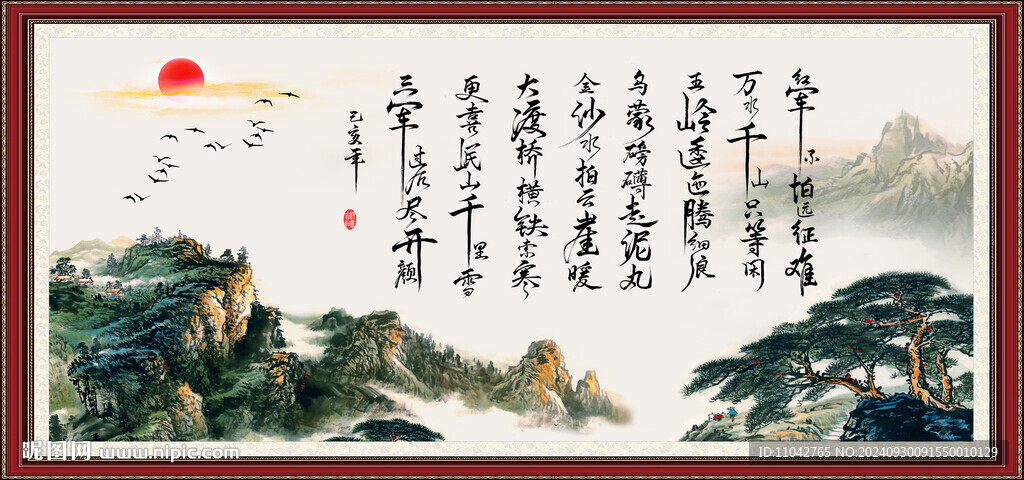 红军不怕远征难
万水千山只等闲
五岭逶迤腾细浪
乌蒙磅礴走泥丸
金沙水拍云崖暖
大渡桥横铁索寒
更喜岷山千里雪
三军过后尽开颜
己亥年
昵图网 www.nipic.com
ID:11042765 NO:20240930091550010129